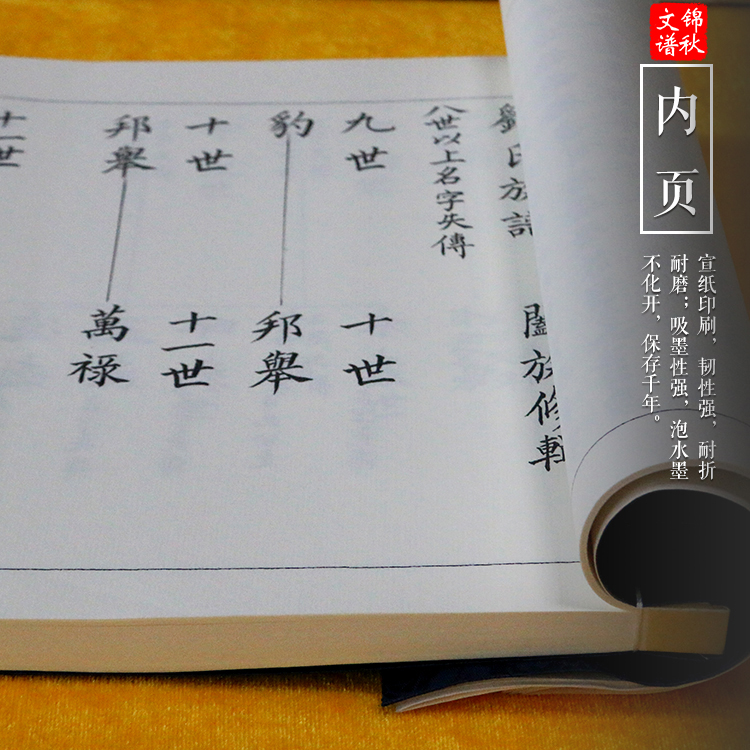 锦秋
文谱
内页
宣纸印刷，韧性强，耐折
耐磨；吸墨性强，泡水墨
不化开，保存千年。
劉氏族譜 闔族修輯
八世以上名字失傳
九世 十世
豹 邦舉
十世 十一世
邦舉 萬禄
十一世